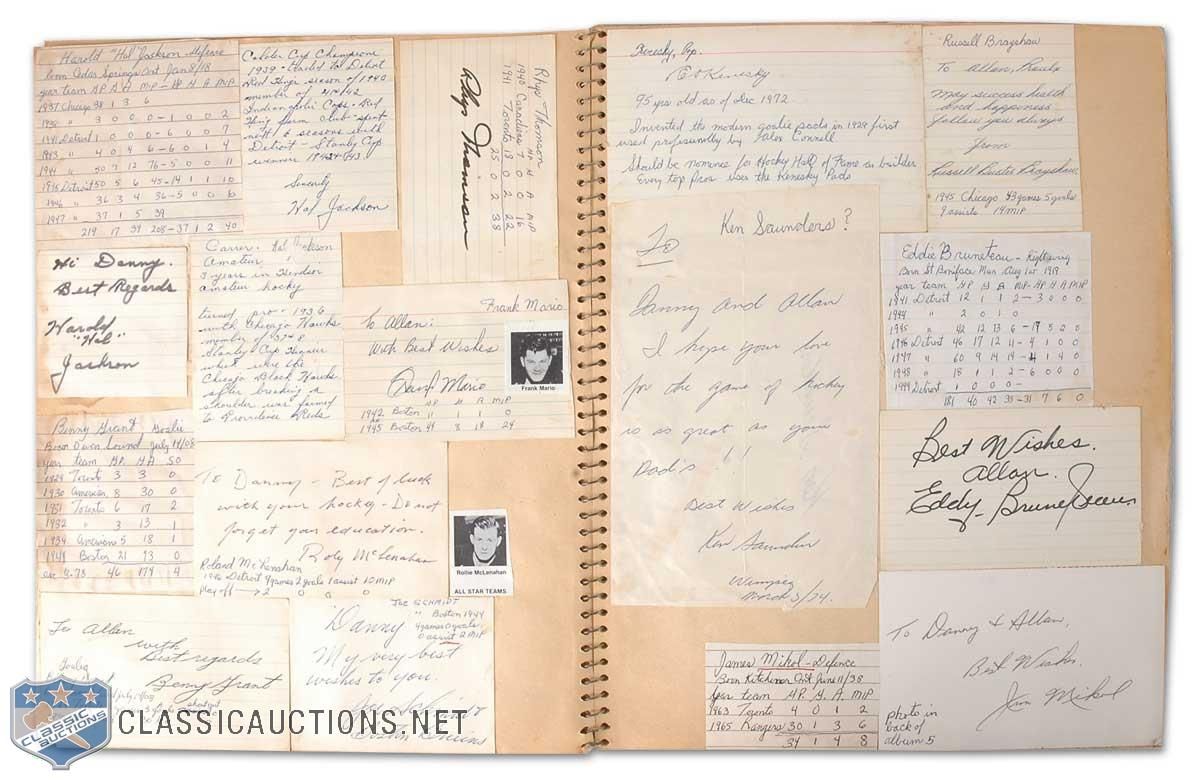 Harold "Hal" Jackson - defense
born Cedar Springs Ont Jan 8/18
year team GP G A MIP - GP G A MIP
1937 Chicago 38 1 3 6
1938 " 3 0 0 0 - 1 0 0 2
1941 Detroit 1 0 0 0 - 6 0 0 7
1943 " 4 0 4 6 - 6 0 1 4
1944 " 50 9 12 76 - 5 0 0 11
1945 Detroit 50 5 6 45 - 14 1 1 10
1946 " 36 3 4 36 - 5 0 0 6
1947 " 37 1 5 39
219 17 34 208 - 37 1 2 40
Calder Cup Champions
1939 -
Red Wings season of 1940
member of 1941/42
Indianapolis Caps - Red
Wing farm Club - spent
next 6 seasons with
Detroit - Stanley Cup
winner 1942 - 43
Sincerely
Hal Jackson
Rhys Thomson
GP G A MIP
1940 Canadiens 7 0 0 16
1941 Toronto 18 0 2 22
25 0 2 38
Rhys Thomson
Hi Danny.
Best Regards
Harold
"Hal"
Jackson
Career. Hal Jackson
Amateur
3 years in Windsor
amateur hockey
turned pro - 1936
with Chicago Hawks
member of 37-8
Stanley Cup
which were the
Chicago Black Hawks.
after breaking
shoulder was farmed
to Providence Reds
Frank Mario
To Allan:
With Best Wishes
Frank Mario
GP G A MIP
1942 Boston 9 1 1 0
1945 Boston 44 3 18 24
Frank Mario
Benny Grant Goalie
Born Owen Sound July 14/08
year team GP GA SO
1929 Toronto 3 3 0
1930 American 8 30 0
1931 Toronto 6 17 2
1932 " 3 13 1
1934 Americans 5 18 1
1944 Boston 21 93 0
ave 3.78 46 174 4
To Danny Best of luck
with your hockey - Do not
forget your education.
Roly McLenahan
Roland McLenahan
1946 Detroit 9 games 2 goals 1 assist 10 MIP
play off → 2 0 0 0
Rollie McLenahan
ALL STAR TEAMS
To Allan
with
Best regards
Benny Grant
Joe SCHMIDT
" Boston 1944
4 games 0 goals
0 assist 2 MIP
Danny
My very best
wishes to you.
Joe Schmidt
Boston Bruins
Kenesky, Pop.
Pop Kenesky
95 yrs old as of Dec 1972
Invented the modern Goalie pads in 1924 first
used professionally by Pat Connell
Should be nominee for Hockey Hall of Fame as builder
Every top Pros uses the Kenesky Pads
Russell Brayshaw
To Allan,
May success health
and happiness
follow you always
from
Russell Buster Brayshaw.
1945 Chicago 43 games 5 goals
9 assists 24 MIP
Ken Saunders?
To
Danny and Allan
I hope your love
for the game of hockey
is as great as your
Dad's !!
Best Wishes
Ken Saunders
Winnipeg
March 3/74.
Eddie Bruneteau - Rightwing
Born St Boniface Man Aug 1st 1919
year team GP G A MIP - GP G A MIP
1941 Detroit 12 1 1 2 - 3 0 0 0
1944 " 2 0 1 0
1945 " 42 12 13 6 - 14 5 2 0
1946 Detroit 46 17 12 11 - 4 1 4 0
1947 " 60 4 14 14 - 6 1 4 0
1948 " 18 1 1 2 - 6 0 0 0
1949 Detroit 1 0 0 0 -
181 40 42 35 - 31 7 6 0
Best Wishes.
Allan.
Eddy Bruneteau
James Mikol - Defence
Born Kitchener Ont June 11/38
Year team GP G. A. MIP
1963 Toronto 4 0 1 2
1965 Rangers 30 1 3 6
34 1 4 8
To Danny & Allan,
Best Wishes.
Jim Mikol
photo in
back of
album 5
CLASSIC
AUCTIONS
CLASSICAUCTIONS.NET